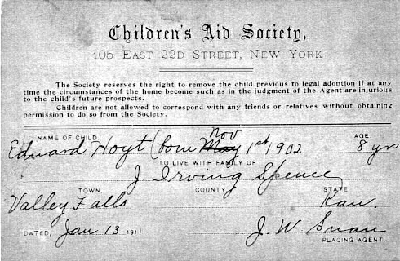 Children's Aid Society,
105 EAST 22D STREET, NEW YORK
The Society reserves the right to remove the child previous to legal adoption if at any
time the circumstances of the home become such as in the judgment of the Agent are injurious
to the child's future prospects.
Children are not allowed to correspond with any friends or relatives without obtaining
permission to do so from the Society.
NAME OF CHILD AGE
Edward Hoyt (born May Nov 1st 1902 8 yr
TO LIVE WITH FAMILY OF
J Irving Spence
TOWN COUNTY STATE
Valley Falls Kan.
DATED, Jan 13 191
J. W. Swan
PLACING AGENT